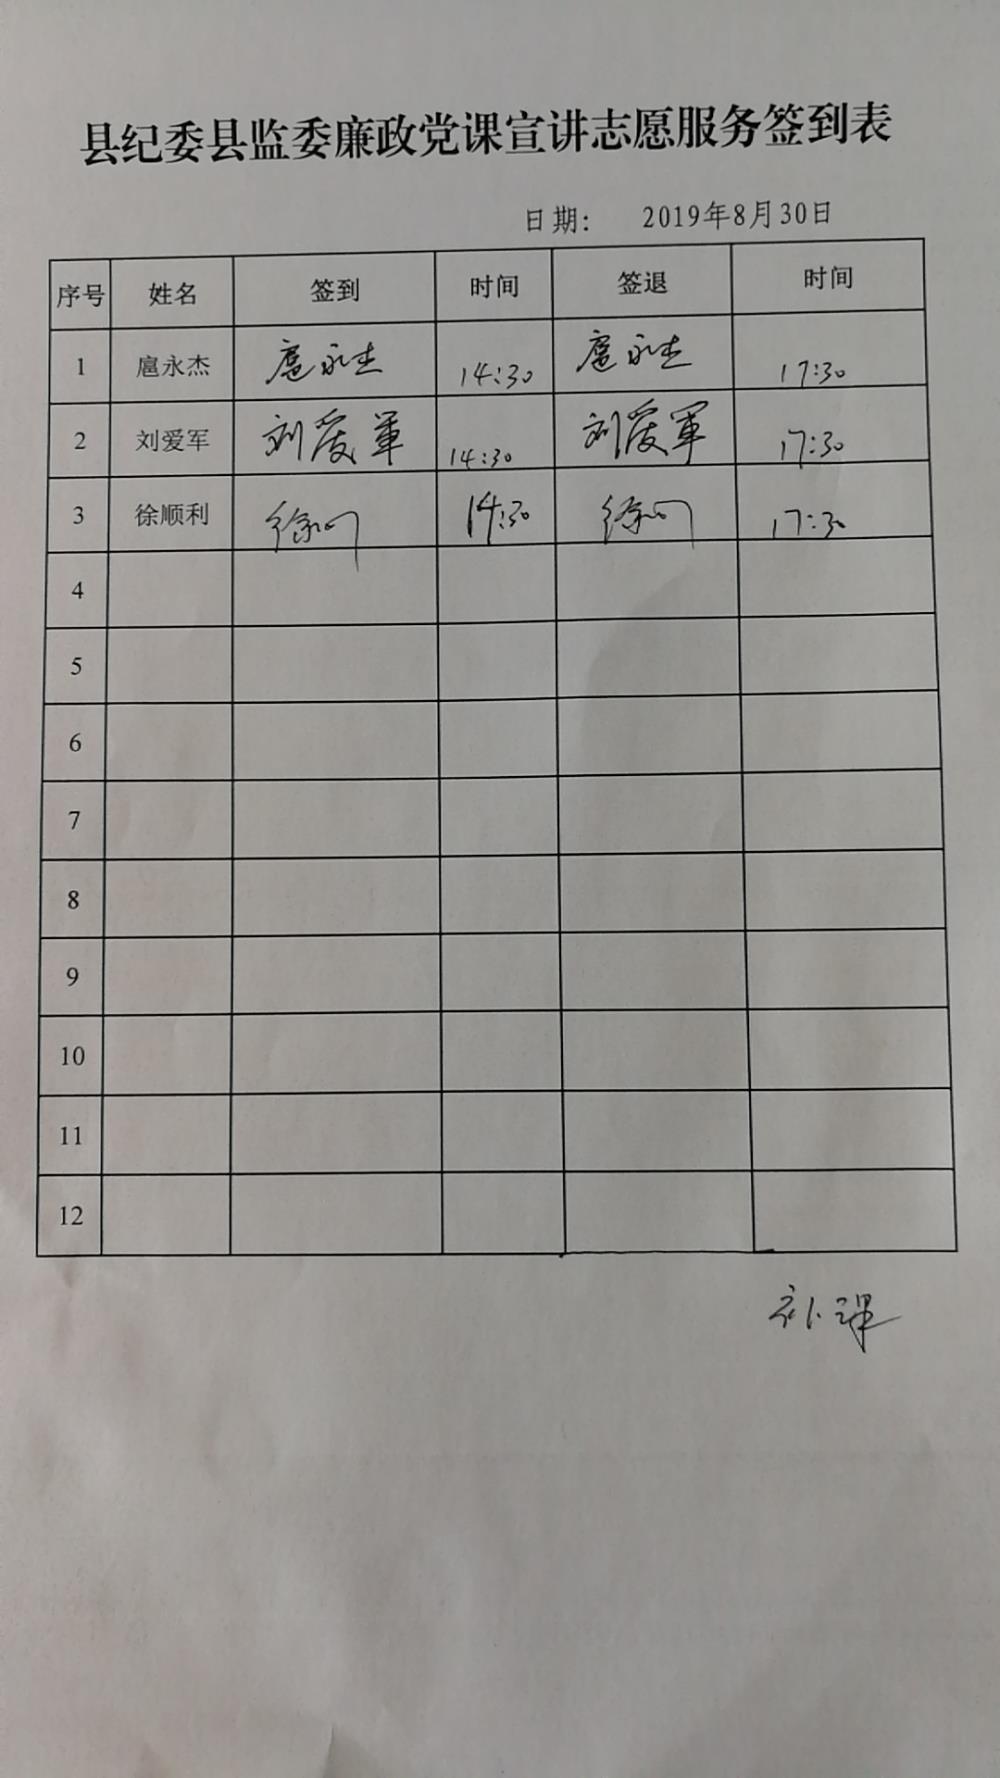 县纪委县监委廉政党课宣讲志愿服务签到表
日期： 2019年8月30日
序号 姓名 签到 时间 签退 时间
1 扈永杰 扈永杰 14:30 扈永杰 17:30
2 刘爱军 刘爱軍 14:30 刘爱軍 17:30
3 徐顺利 徐顺利 14:30 徐顺利 17:30
4
5
6
7
8
9
10
11
12
补课